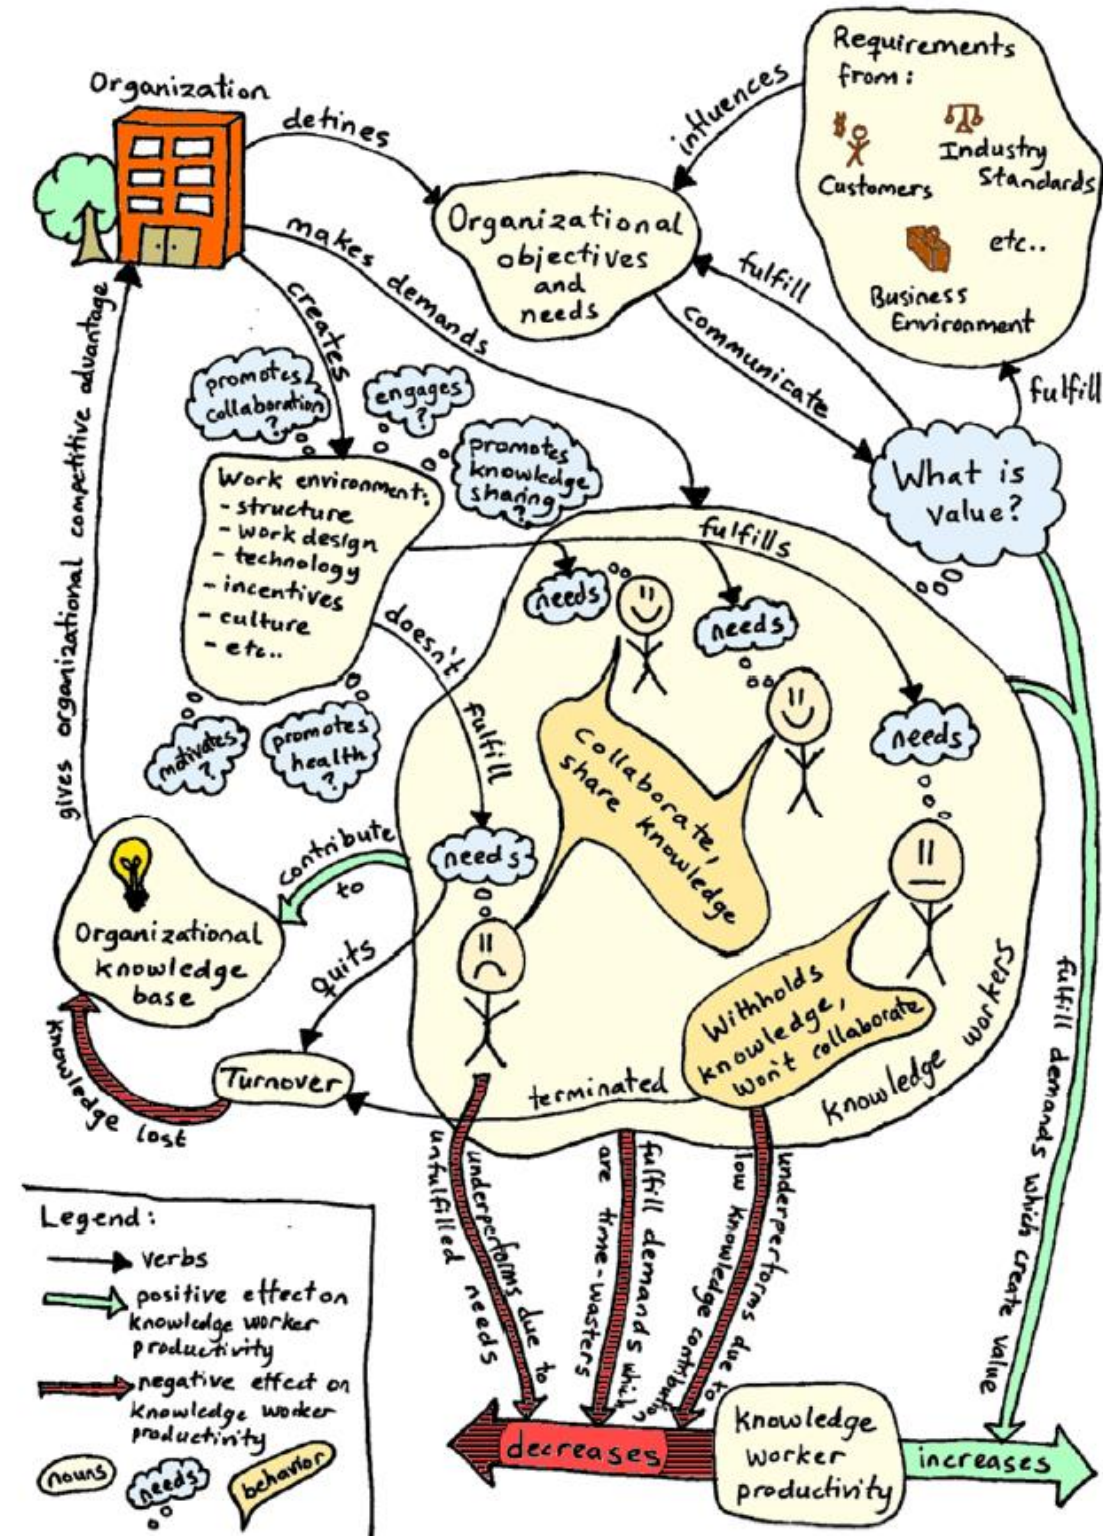 Organization
defines
influences
Requirements
from:
Customers
Industry
Standards
etc..
Business
Environment
Organizational
objectives
and
needs
makes demands
creates
fulfill
communicate
fulfill
What is
value?
gives organizational competitive advantage
promotes
collaboration
?
engages
?
promotes
knowledge
sharing
?
Work environment:
- structure
- work design
- technology
- incentives
- culture
- etc..
motivates
?
promotes
health
?
fulfills
doesn't
fulfill
needs
needs
needs
needs
Collaborate,
share knowledge
Withholds
knowledge,
won't collaborate
knowledge workers
contribute
to
Organizational
knowledge
base
quits
Turnover
terminated
knowledge lost
underperforms due to
unfulfilled needs
fulfill demands which
are time-wasters
underperforms due to
low knowledge contribution
fulfill demands which create value
decreases
Knowledge
Worker
productivity
increases
Legend:
verbs
positive effect on
knowledge worker
productivity
negative effect on
knowledge worker
productivity
nouns
needs
behavior